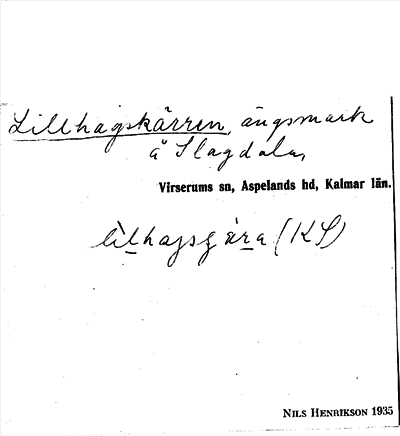 Lillhagskärren, ängsmark
å Slagdala,
Virserums sn, Aspelands hd, Kalmar län.
(KS)
NILS HENRIKSON 1935